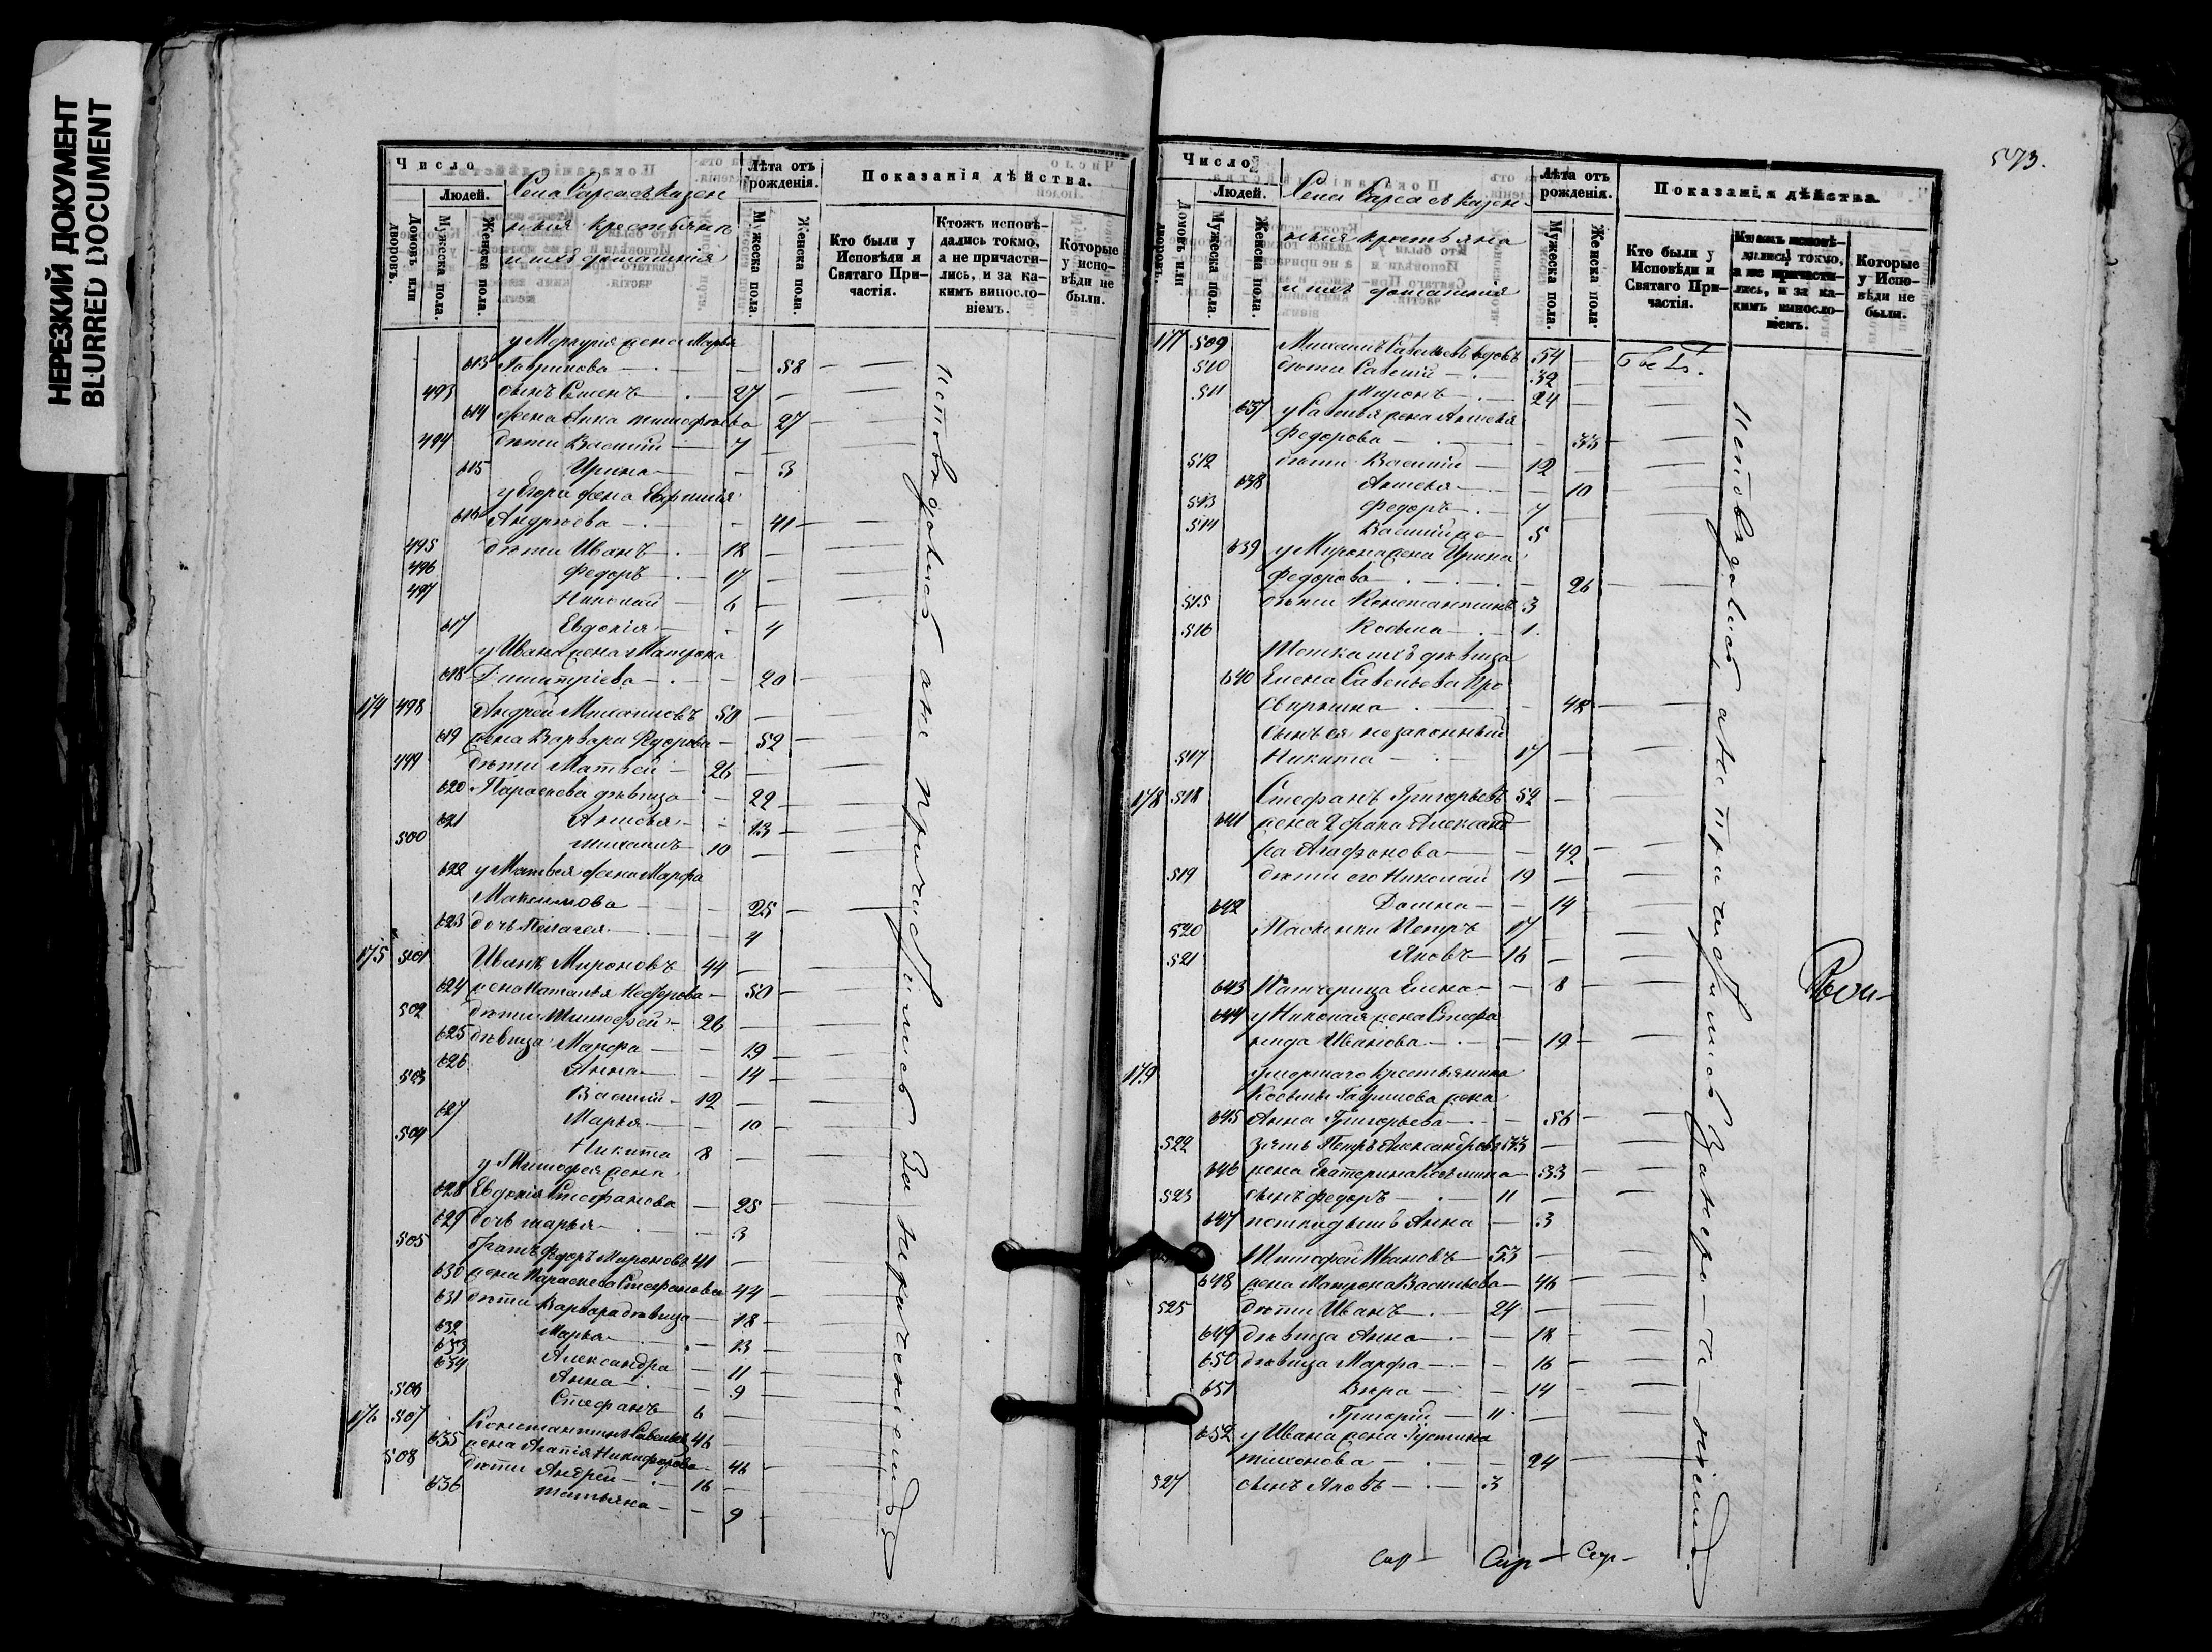 НЕРЕЗКИЙ ДОКУМЕНТ
BLURRED DOCUMENT
Число
Людей.
Домовъ или дворовъ.
Мужеска пола.
Женска пола.
Села Сарса съ казен
ныя крестьяне
и ихъ домашнія
Лѣта отъ рожденія.
Мужеска пола.
Женска пола.
Показанія дѣйства.
Кто были у Исповѣди и Святаго Причастія.
Ктожъ исповѣдались токмо, а не причастились, и за какимъ винословіемъ.
Которые у исповѣди не были.
у Меркурія жена Марья
613 Гаврилова — — 58
493 сынъ Семенъ 27 —
614 жена Анна Тимофѣева 27
494 дѣти Василій — 7 —
615 Ирина — — 3
у Егора жена Евфимія
616 Андреева — — 41
495 дѣти Иванъ — 18 —
496 Федоръ — 17 —
497 Николай — 6 —
617 Евдокія — — 4
у Ивана жена Матрона
618 Димитріева — — 20
174 498 Андрей Михаиловъ 50 —
619 жена Варвара Федорова — 52
499 дѣти Матвей — 26 —
620 Параскева дѣвица — 22
621 — 13
500 Михаилъ 10 —
622 у Матвея жена Марфа
Максимова — — 25
623 дочь Пелагея — — 4
175 501 Иванъ Мироновъ 44 —
624 жена Наталья — 50
502 дѣти Тимофей — 26 —
625 дѣвица Марфа — — 19
626 Анна — — 14
503 Василій — 12 —
627 Марья — — 10
504 Никита 8 —
у Тимофея жена
628 Евдокія Стефанова — 25
629 дочь Марья — — 3
505 братъ Федоръ Мироновъ 41 —
630 жена Параскева Стефанова 44
631 дѣти Варвара дѣвица — 18
632 Марья — — 13
633 Александра — 11
634 Анна — — 9
506 Стефанъ 6 —
176 507 Константинъ Савельевъ 46
635 жена Агапія Никифорова — 46
508 дѣти Андрей — 16 —
636 Татьяна — — 9
исповѣдались а не причастились за нераченіемъ
573.
Число
Людей.
Домовъ или дворовъ.
Мужеска пола.
Женска пола.
Села Сарса съ казен-
ныя крестьяна
и ихъ домашнія
Лѣта отъ рожденія.
Мужеска пола.
Женска пола.
Показанія дѣйства.
Кто были у Исповѣди и Святаго Причастія.
Ктожъ исповѣдались токмо, а не причастились, и за какимъ винословіемъ.
Которые у Исповѣди не были.
177 509 Михаилъ Савельевъ вдовъ 54 —
510 дѣти Савелій — 32 —
511 Миронъ — 24 —
637 у Савелья жена
Федорова — — 33
512 дѣти Василій — 12 —
638 — 10
513 Федоръ — 7 —
514 Василій же — 5
639 у Мирона жена Ирина
Федорова — — 26
515 дѣти Константинъ 3
516 Косьма — 1.
Тетка ихъ дѣвица
640 Елена Савельева Про
свирьнина — — 48
сынъ ея незаконный
517 Никита — 17 —
178 518 Стефанъ Григорьевъ 52 —
641 жена 2 брака Александ
ра Агафонова — — 49
519 дѣти его Николай 19 —
642 Домна — — 14
520 Пасынки Петръ 17 —
521 Яковъ — 16 —
643 Патчерица Елена — — 8
644 у Николая жена Стефа
нида Иванова — — 19
179 умершаго крестьянина
Косьмы Гаврилова жена
645 Анна Григорьева — — 56
522 зять Петръ Александровъ 33 —
646 жена Екатерина Косьмина — 33
523 сынъ Федоръ — 11 —
647 поткидышъ Анна — 3
Тимофей Ивановъ — 53 —
648 жена Матрона Васильева — 46
525 дѣти Иванъ — 24 —
649 дѣвица Анна — — 18
650 дѣвица Марфа — — 16
651 Вера — — 14
Григорій — 11 —
652 у Ивана жена Iустина
Тихонова — — 24
527 сынъ Яковъ — 3
исповѣдались а не причастились за нераченіемъ.